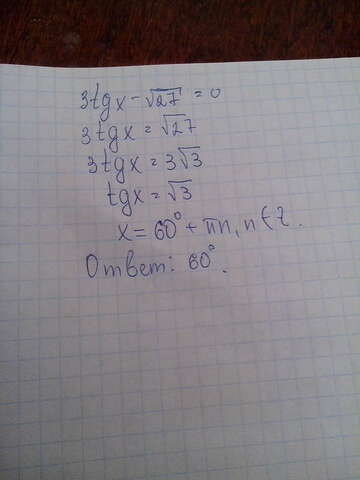 3tgx - √27 = 0
3tgx = √27
3tgx = 3√3
tgx = √3
x = 60° + πn, n ∈ Z.
Ответ: 60°.